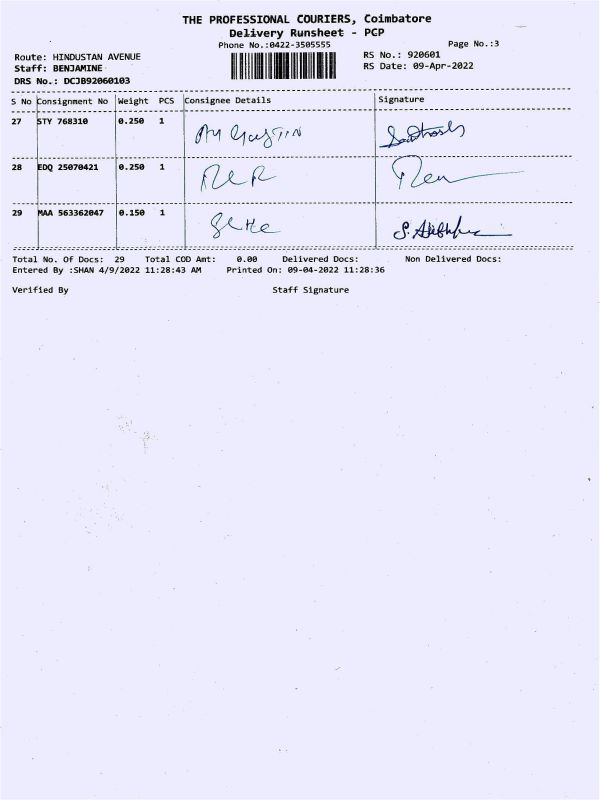 THE PROFESSIONAL COURIERS, Coimbatore
Delivery Runsheet - PCP
Phone No.:0422-3505555 Page No.:3
Route: HINDUSTAN AVENUE RS No.: 920601
Staff: BENJAMINE RS Date: 09-Apr-2022
DRS No.: DCJB92060103
S No Consignment No Weight PCS Consignee Details Signature
27 STY 768310 0.250 1
28 EDQ 25070421 0.250 1
29 MAA 563362047 0.150 1
Total No. Of Docs: 29 Total COD Amt: 0.00 Delivered Docs: Non Delivered Docs:
Entered By :SHAN 4/9/2022 11:28:43 AM Printed On: 09-04-2022 11:28:36
Verified By Staff Signature